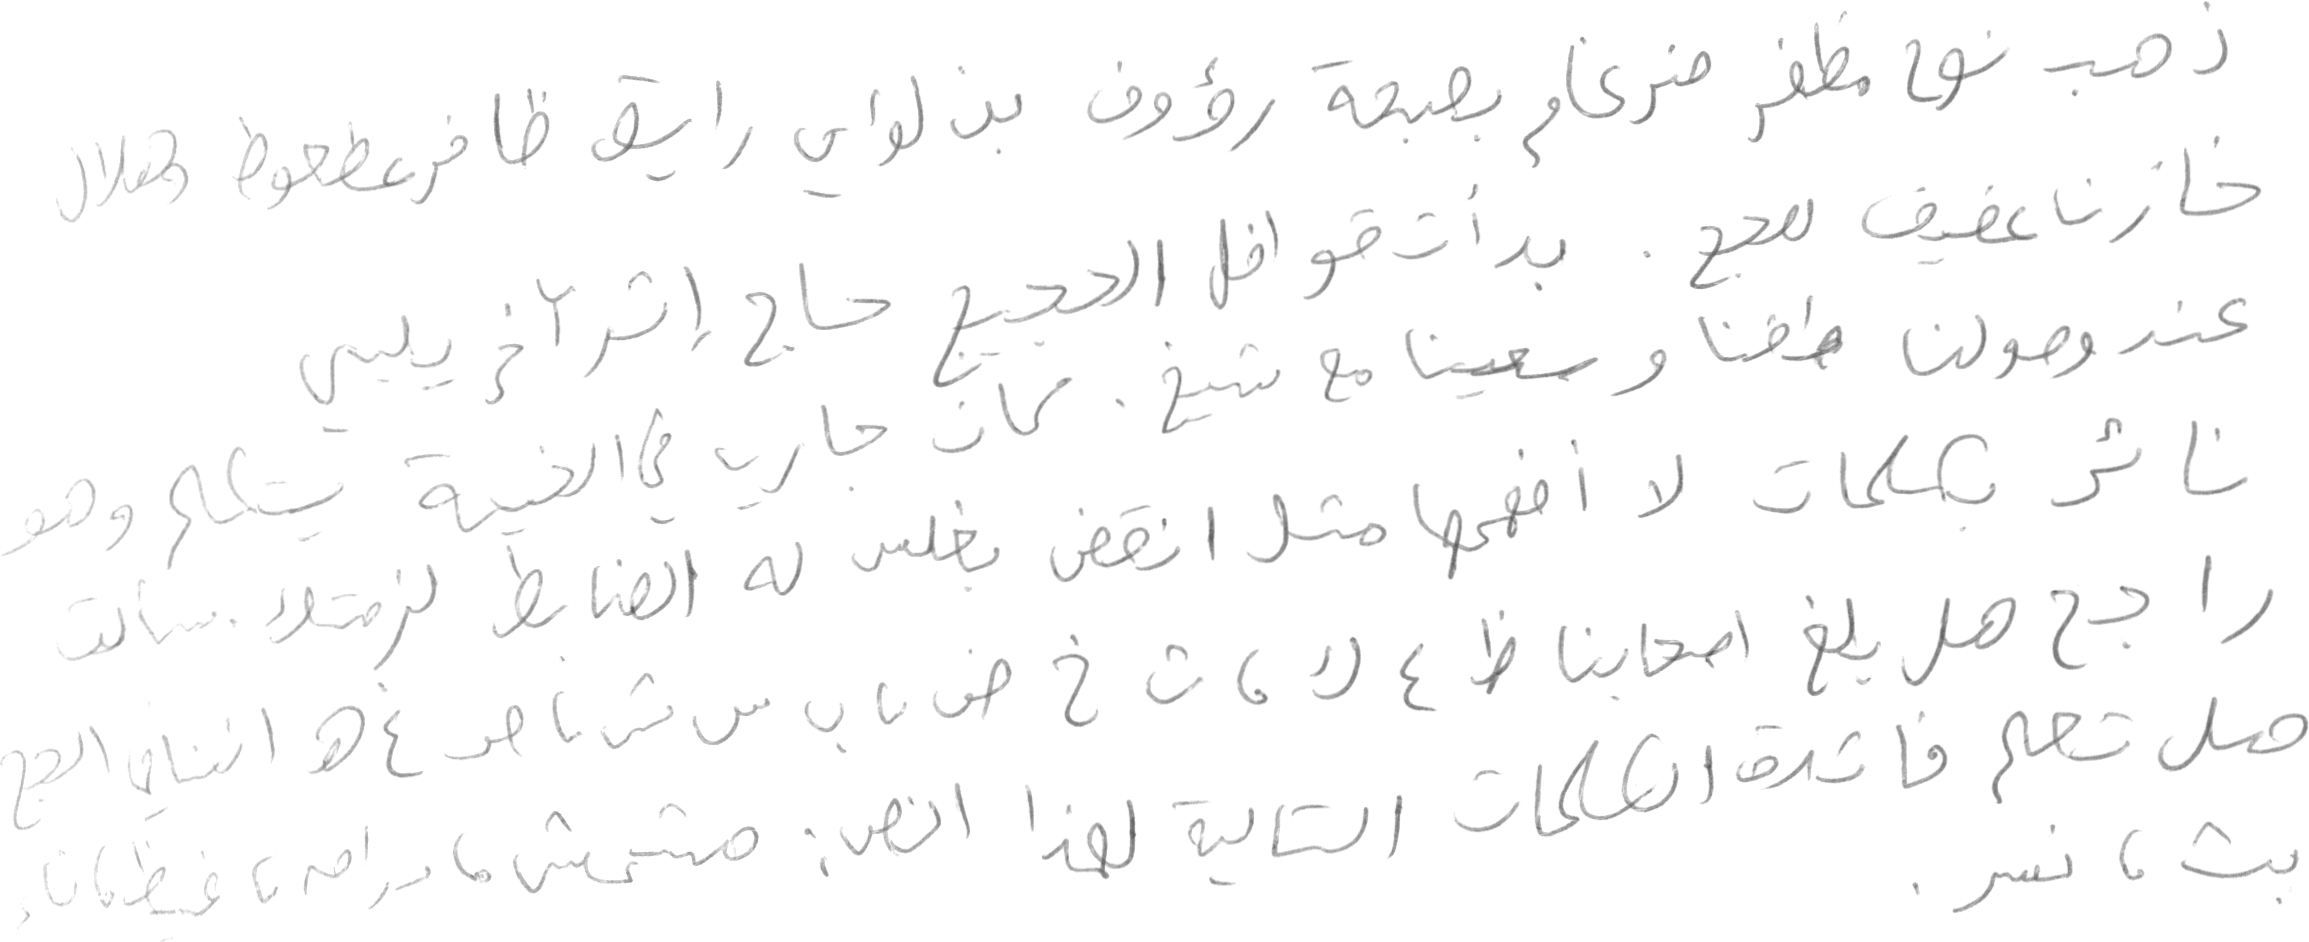 ذهب نوح مظفر ضرغام بصبحة رؤوف بن لؤي رايق ظافر عطعوط هلال
خازرنا عفيف للحج . بدأت قوافل الحجيج حاج إثر آخر يلبي
عند وصولنا طفنا وسعينا مع شيخ . كان جاري في الخيمة يتكلم وهو
نائم بكلمات لا أفهمها مثل انقض بغلس له الضابط لزمتلا . سألت
راجح هل بلغ اصحابنا ظ ع لا ، ث خ ض ، ب س ش ، ص ع هـ اثناء الحج
هل تعلم فائدة الكلمات التالية لهذا النص : مشمش ، راهـ ، غيظ ،
بث ، نسر .